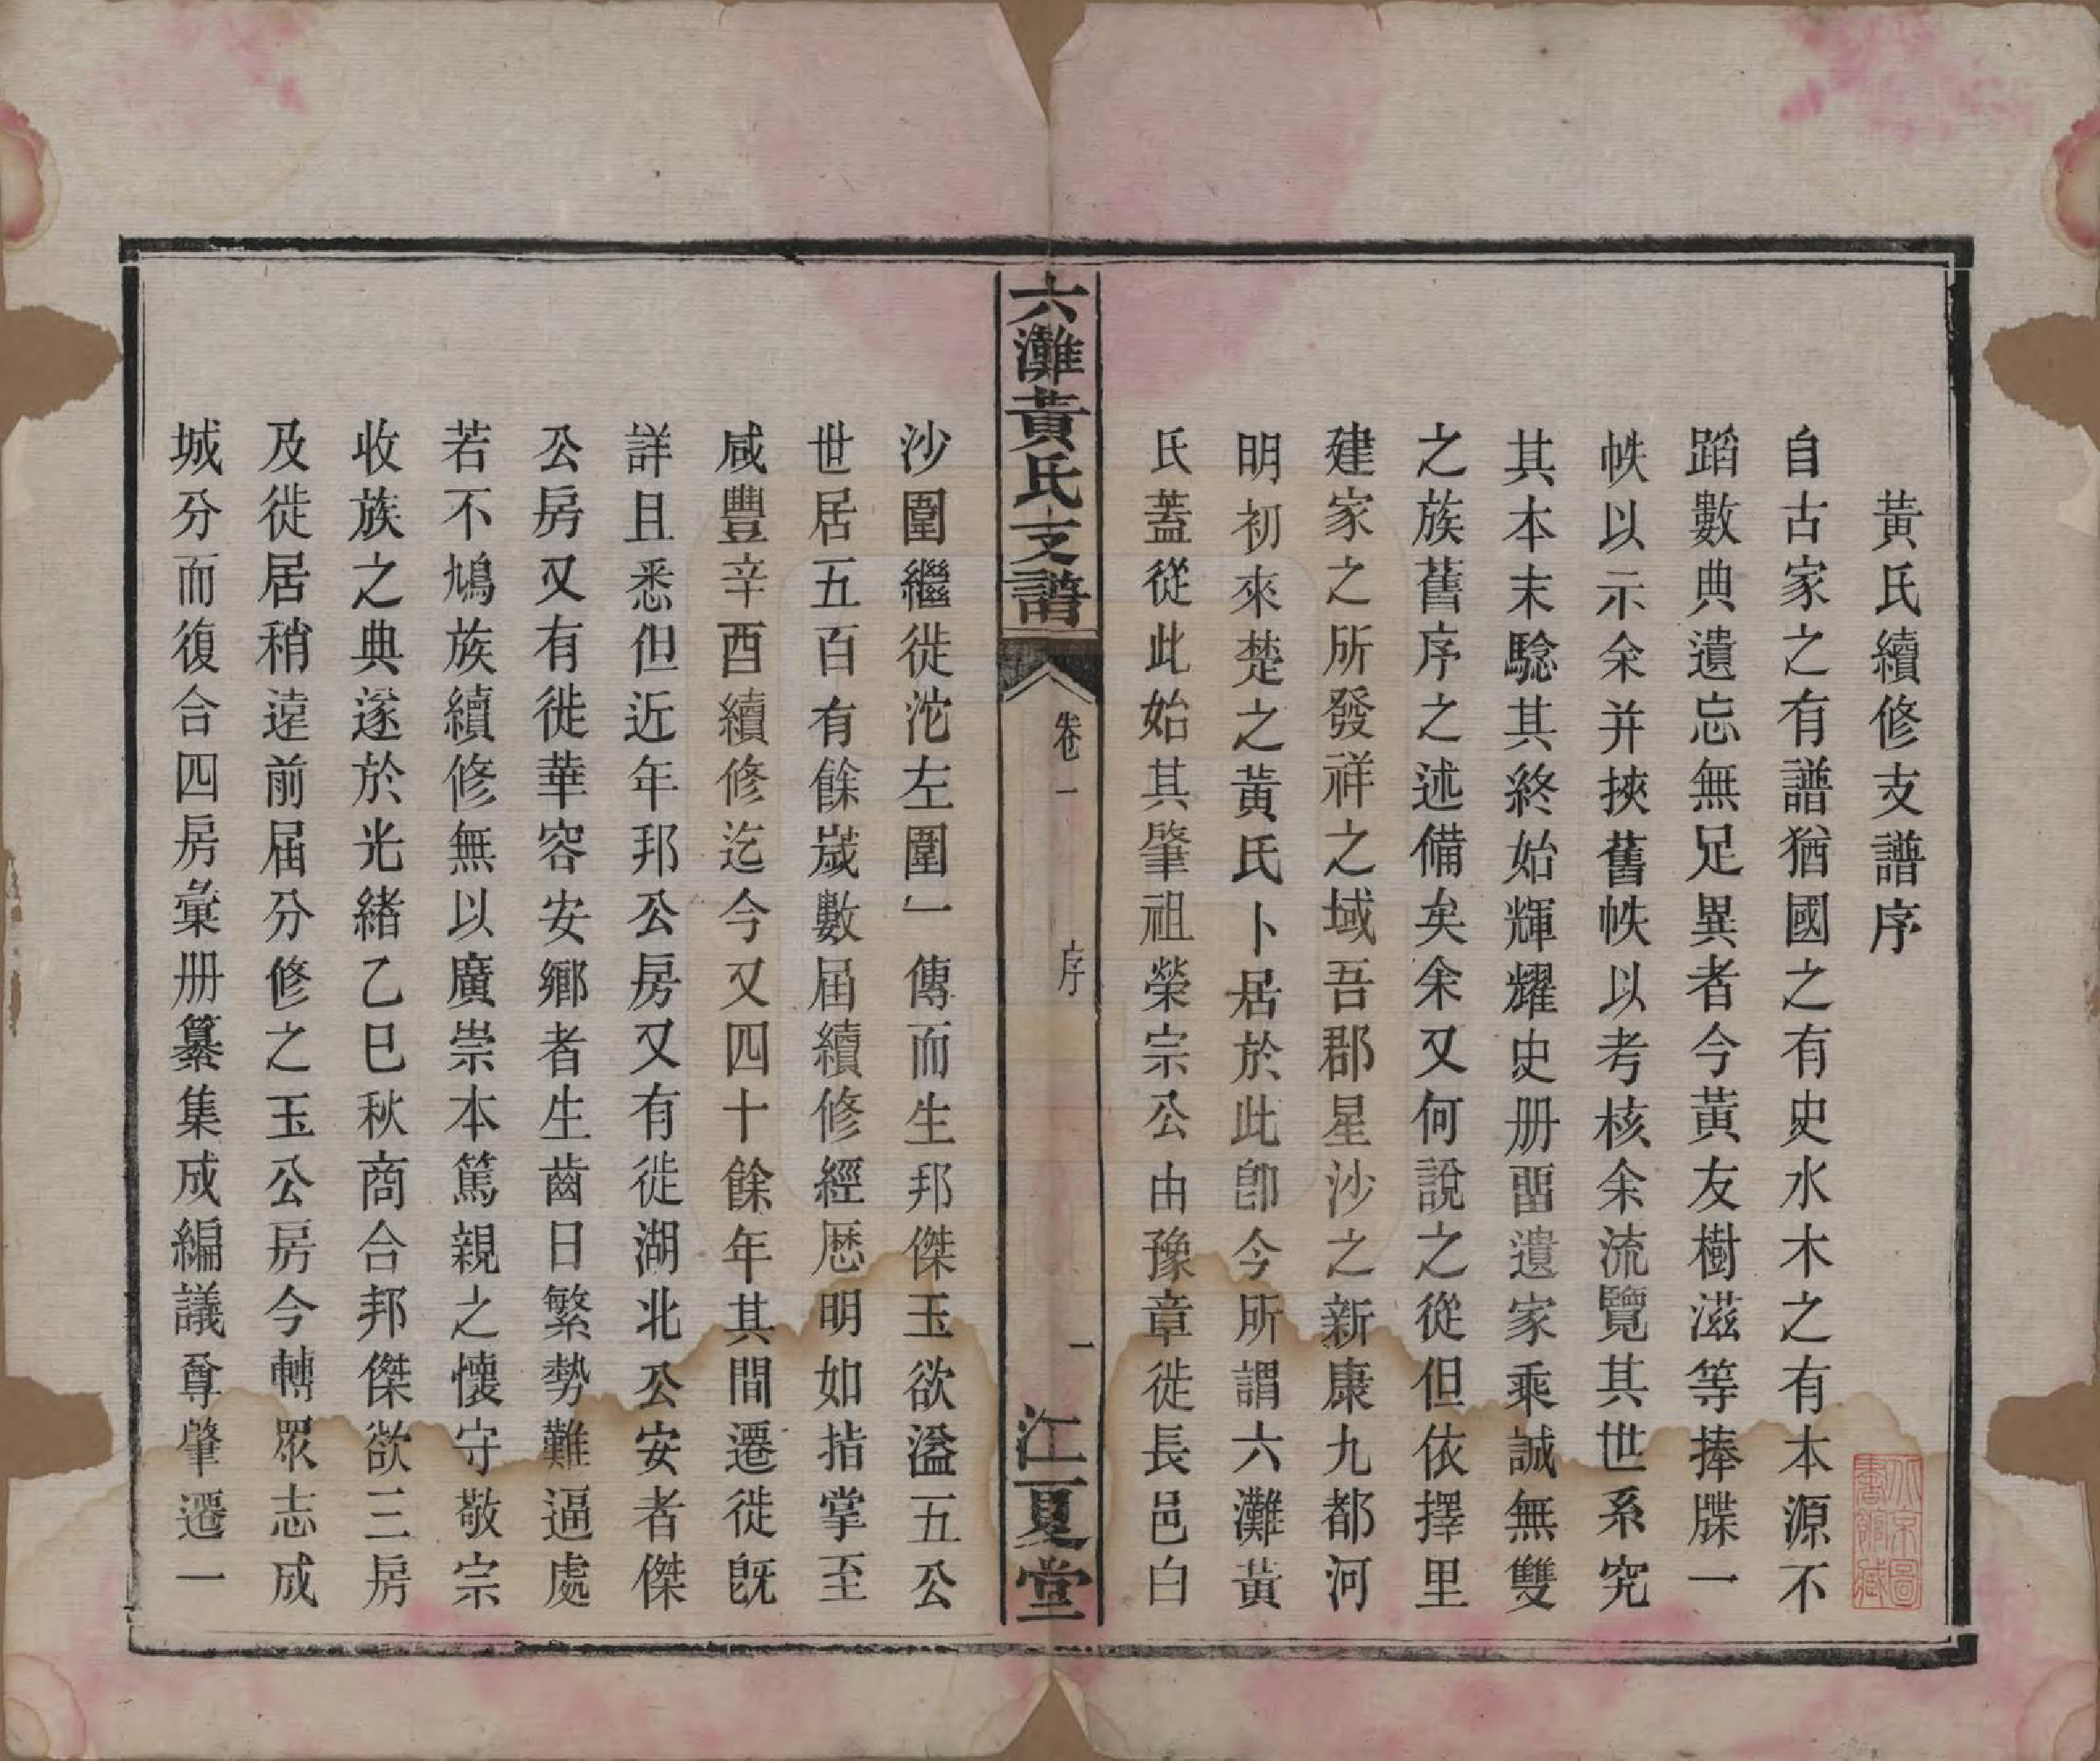 黃氏續修支譜序
自古家之有譜猶國之有史水木之有本源不
蹈數典遺忘無足異者今黃友樹滋等捧牒一
帙以示余并挾舊帙以考核余流覽其世系究
其本末騐其終始輝耀史册畱遺家乘誠無雙
之族舊序之述備矣余又何說之從但依擇里
建家之所發祥之域吾郡星沙之新康九都河
明初來楚之黃氏卜居於此卽今所謂六灘黃
氏蓋從此始其肇祖榮宗公由豫章徙長邑白
六灘黃氏支譜
卷一
序
一
江夏堂
沙圍繼徙沱左圍一傳而生邦傑玉欲溢五公
世居五百有餘崴數届續修經厯明如指掌至
咸豐辛酉續修迄今又四十餘年其間遷徙旣
詳且悉但近年邦公房又有徙湖北公安者傑
公房又有徙華容安鄉者生齒日繁勢難逼處
若不鳩族續修無以廣崇本篤親之懷守敬宗
收族之典遂於光緒乙巳秋商合邦傑欲三房
及徙居稍遠前届分修之玉公房今轉眾志成
城分而復合四房彙册纂集成編議尊肇遷一